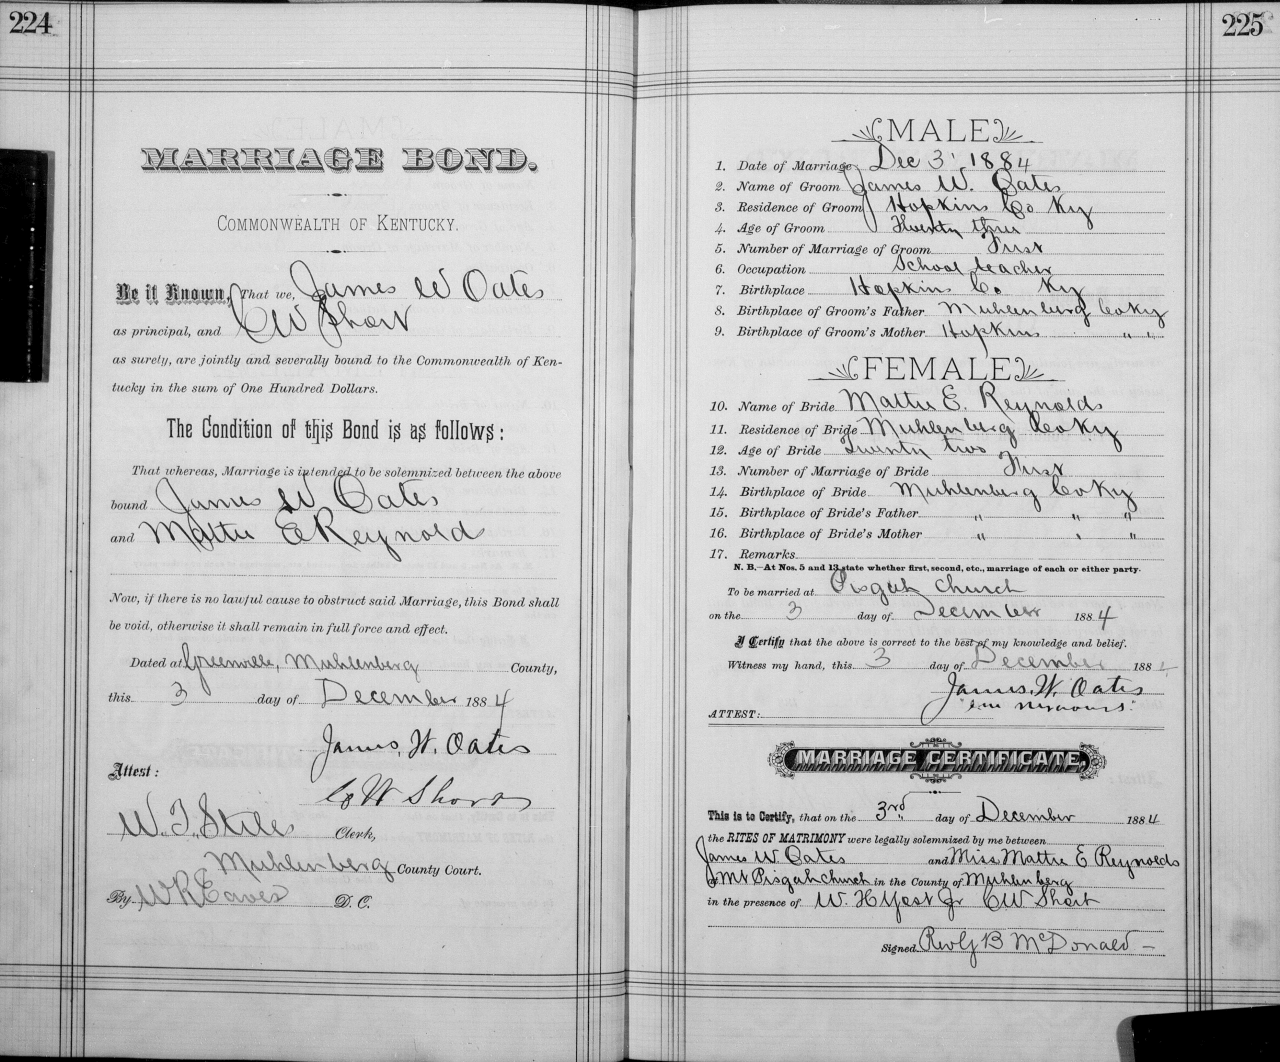 224
MARRIAGE BOND.
COMMONWEALTH OF KENTUCKY.
Be it Known, That we, James W Oates
as principal, and C W Short
as surety, are jointly and severally bound to the Commonwealth of Ken-
tucky in the sum of One Hundred Dollars.
The Condition of this Bond is as follows:
That whereas, Marriage is intended to be solemnized between the above
bound James W Oates
and Mattie E Reynold
Now, if there is no lawful cause to obstruct said Marriage, this Bond shall
be void, otherwise it shall remain in full force and effect.
Dated at Greenville, Muhlenberg County,
this 3 day of December 1884
James, W. Oates
Attest:
C W Short
W. T. Stiles Clerk,
Muhlenberg County Court.
By W R Eaves D. C.
225
MALE
1. Date of Marriage Dec 3, 1884
2. Name of Groom James W. Oates
3. Residence of Groom Hopkins Co Ky
4. Age of Groom Twenty three
5. Number of Marriage of Groom First
6. Occupation School teacher
7. Birthplace Hopkins Co Ky
8. Birthplace of Groom's Father Muhlenberg Co Ky
9. Birthplace of Groom's Mother Hopkins " "
FEMALE
10. Name of Bride Mattie E. Reynolds
11. Residence of Bride Muhlenberg Co Ky
12. Age of Bride Twenty two
13. Number of Marriage of Bride First
14. Birthplace of Bride Muhlenberg Co Ky
15. Birthplace of Bride's Father " " "
16. Birthplace of Bride's Mother " " "
17. Remarks
N. B.—At Nos. 5 and 13 state whether first, second, etc., marriage of each or either party.
To be married at Pisgah Church
on the 3 day of December 1884
I Certify that the above is correct to the best of my knowledge and belief.
Witness my hand, this 3 day of December 1884
James, W. Oates
ATTEST:
MARRIAGE CERTIFICATE.
This is to Certify, that on the 3rd day of December 1884
the RITES OF MATRIMONY were legally solemnized by me between
James W Oates and Miss Mattie E Reynolds
at Mt Pisgah church in the County of Muhlenberg
in the presence of W. H Yost Jr C W Short
Signed Rev G B McDonald —